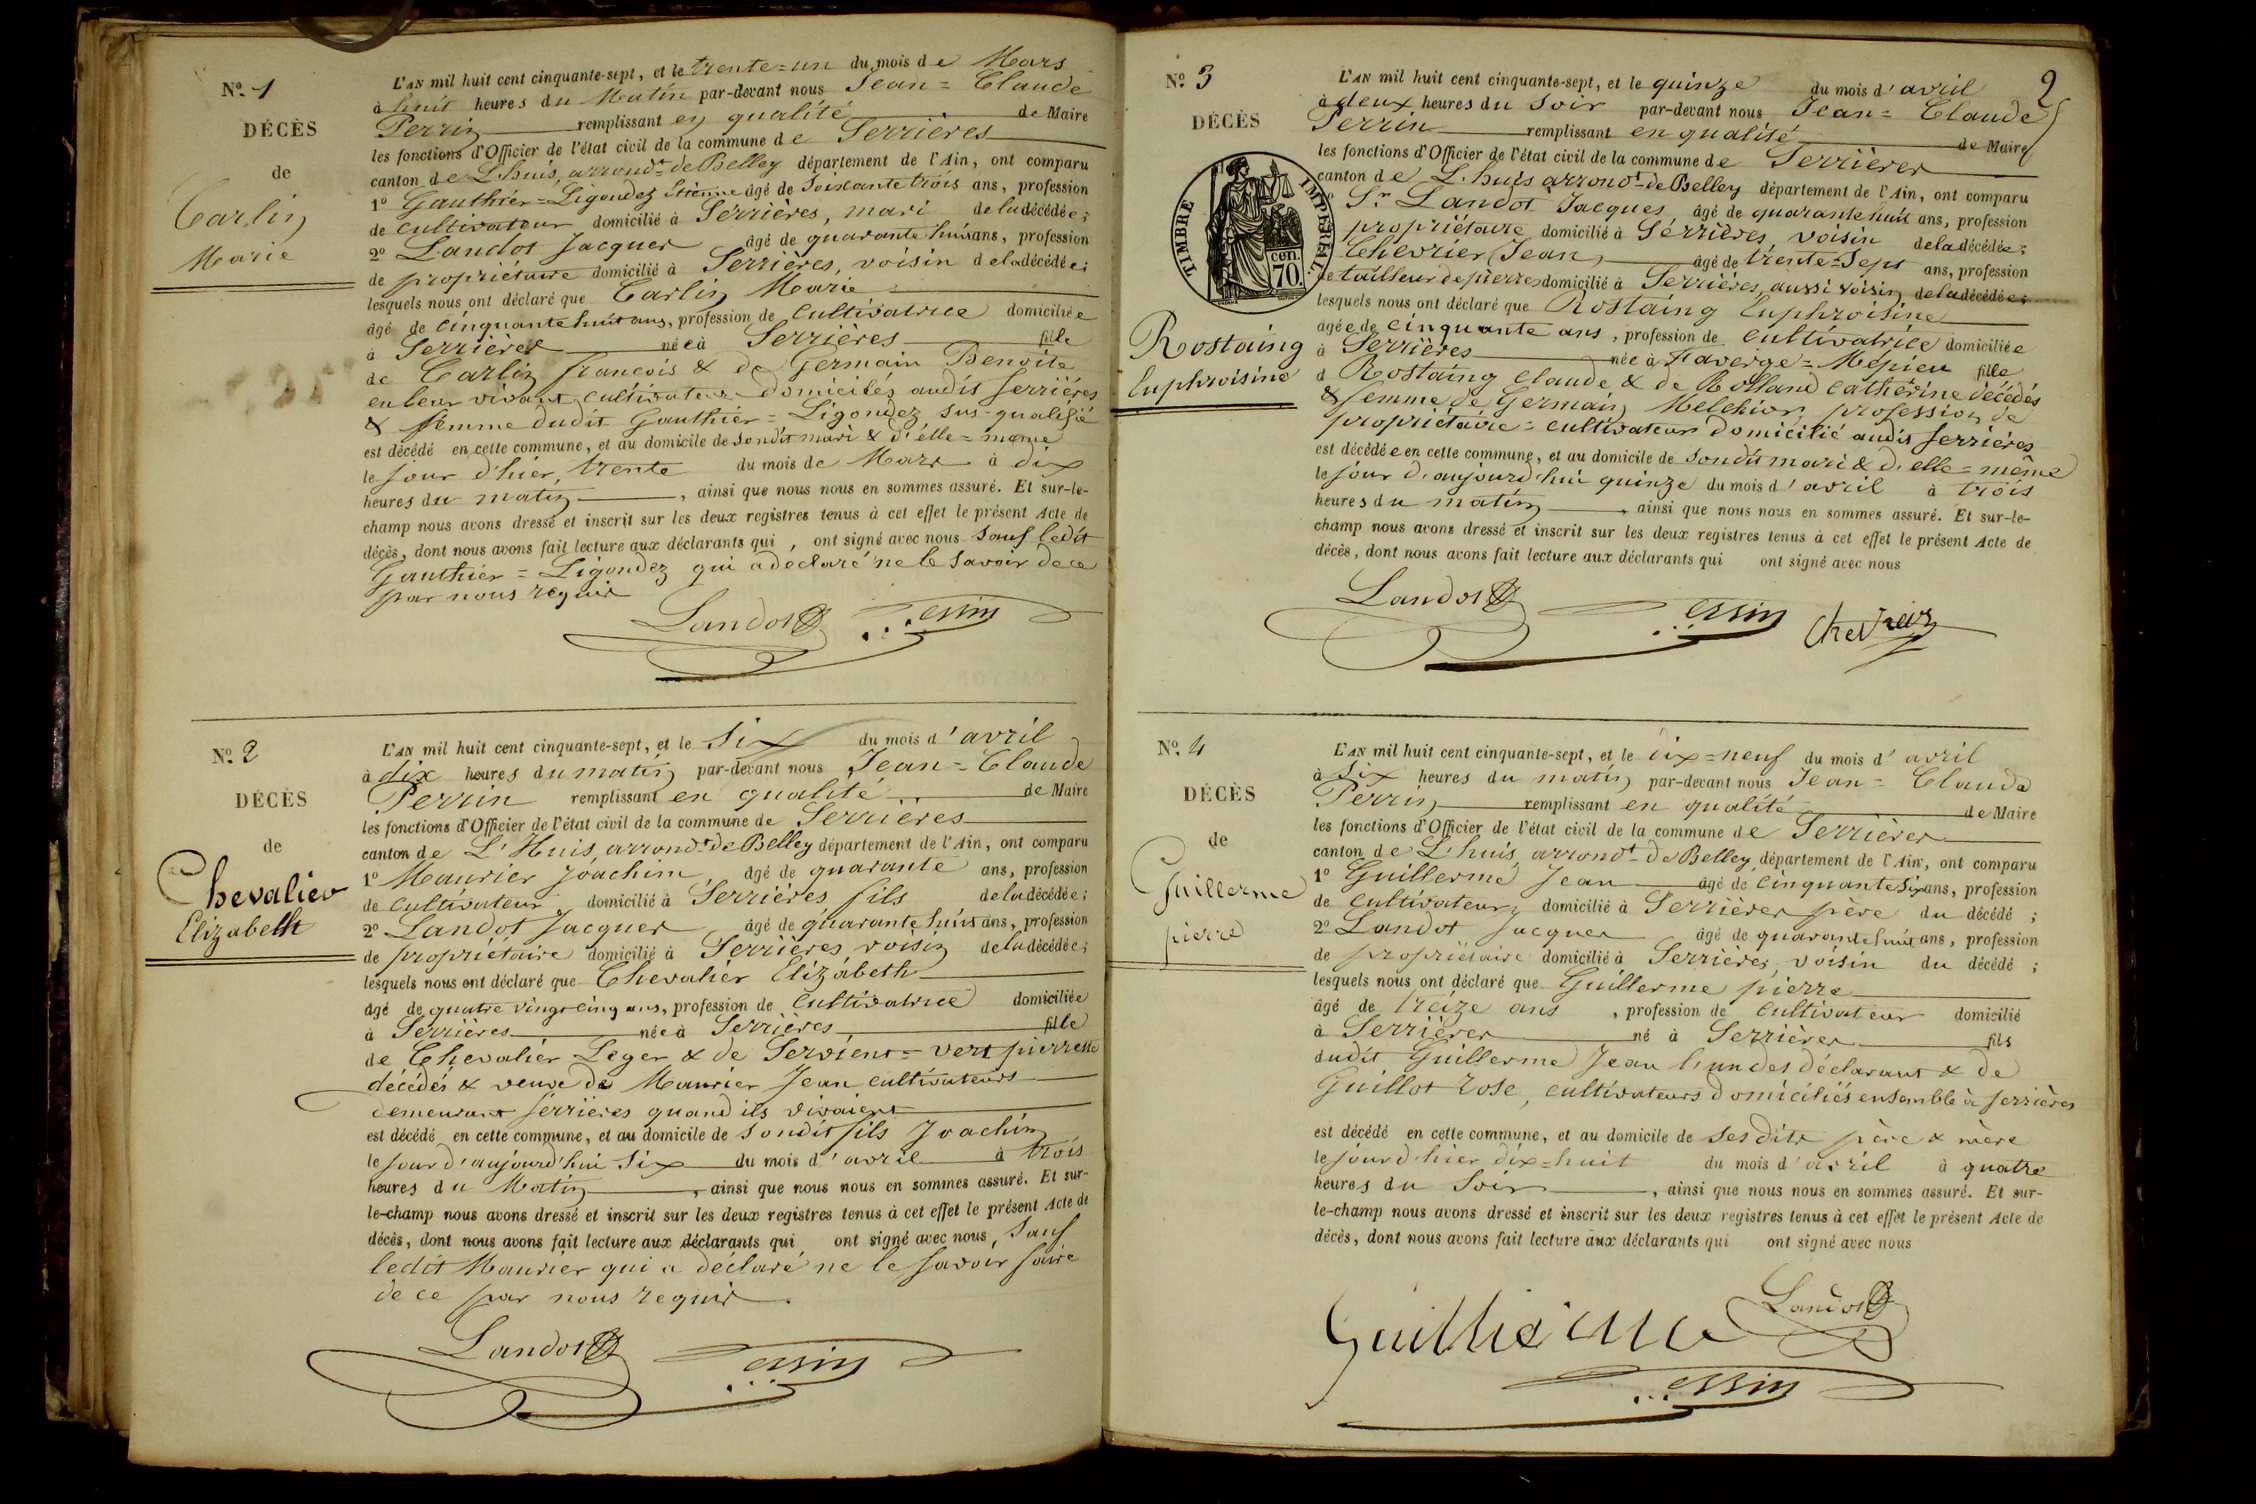 N.º 1
DÉCÈS
de
Carlin
Marie
L'AN mil huit cent cinquante-sept, et le trente=un du mois de Mars
à huit heures du Matin par-devant nous Jean=Claude
Perrin remplissant en qualité de Maire
les fonctions d'Officier de l'état civil de la commune de Serrières
canton de L'huis, arrondt de Belley département de l'Ain, ont comparu
1º Gauthier=Ligondez Etienne âgé de soixante trois ans, profession
de cultivateur domicilié à Serrières, mari de la décédée;
2º Landot Jacques âgé de quarante huit ans, profession
de propriétaire domicilié à Serrières, voisin de la décédée;
lesquels nous ont déclaré que Carlin Marie
âgé de cinquante huit ans, profession de cultivatrice domiciliée
à Serrières née à Serrières fille
de Carlin francois & de Germain Benoite
en leur vivant cultivateurs domiciliés audit Serrières
& femme dudit Gauthier=Ligondez sus-qualifié
est décédé en cette commune, et au domicile de sondit mari & d'elle=même
le jour d'hier, trente du mois de Mars à dix
heures du matin, ainsi que nous nous en sommes assuré. Et sur-le-
champ nous avons dressé et inscrit sur les deux registres tenus à cet effet le présent Acte de
décès, dont nous avons fait lecture aux déclarants qui, ont signé avec nous sauf ledit
Gauthier=Ligondez qui a déclaré ne le savoir de ce
par nous requis
Landot
N.º 2
DÉCÈS
de
Chevalier
Elizabeth
L'AN mil huit cent cinquante-sept, et le six du mois d'avril
à dix heures du matin par-devant nous Jean=Claude
Perrin remplissant en qualité de Maire
les fonctions d'Officier de l'état civil de la commune de Serrières
canton de L'Huis, arrondt de Belley département de l'Ain, ont comparu
1º Maurier Joachim, âgé de quarante ans, profession
de cultivateur domicilié à Serrières fils de la décédée;
2º Landot Jacques âgé de quarante huit ans, profession
de propriétaire domicilié à Serrières voisin de la décédée;
lesquels nous ont déclaré que Chevalier Elizabeth
âgé de quatre vingt cinq ans, profession de cultivatrice domiciliée
à Serrières née à Serrières fille
de Chevalier Leger & de Servient=vert pierrette
décédés & veuve de Maurier Jean cultivateurs
demeurant Serrières quand ils vivaient
est décédé en cette commune, et au domicile de sondit fils Joachim
le jour d'aujourd'hui six du mois d'avril à trois
heures du Matin, ainsi que nous nous en sommes assuré. Et sur-
le-champ nous avons dressé et inscrit sur les deux registres tenus à cet effet le présent Acte de
décès, dont nous avons fait lecture aux déclarants qui, ont signé avec nous, sauf
ledit Maurier qui a déclaré ne le savoir faire
de ce par nous requis.
Landot
2
N.º 3
DÉCÈS
TIMBRE IMPÉRIAL
70 cen.
Rostaing
Euphroisine
L'AN mil huit cent cinquante-sept, et le quinze du mois d'avril
à deux heures du soir par-devant nous Jean=Claude
Perrin remplissant en qualité de Maire
les fonctions d'Officier de l'état civil de la commune de Serrières
canton de L'huis arrondt de Belley département de l'Ain, ont comparu
Sr Landot Jacques âgé de quarante huit ans, profession
propriétaire domicilié à Serrières, voisin de la décédée;
Chevrier Jean, âgé de trente=sept ans, profession
de tailleur de pierres domicilié à Serrières, aussi voisin de la décédée;
lesquels nous ont déclaré que Rostaing Euphroisine
âgée de cinquante ans, profession de cultivatrice domiciliée
à Serrières née à faverge=Mépieu fille
d Rostaing Claude & de Rolland Catherine décédés
& femme de Germain Melchior, profession de
propriétaire=cultivateur domicilié audit Serrières
est décédée en cette commune, et au domicile de sondit mari & d'elle=même
le jour d'aujourd'hui quinze du mois d'avril à trois
heures du matin, ainsi que nous nous en sommes assuré. Et sur-le-
champ nous avons dressé et inscrit sur les deux registres tenus à cet effet le présent Acte de
décès, dont nous avons fait lecture aux déclarants qui ont signé avec nous
Landot
Chevrier
N.º 4
DÉCÈS
de
Guillerme
pierre
L'AN mil huit cent cinquante-sept, et le dix=neuf du mois d'avril
à six heures du matin par-devant nous Jean=Claude
Perrin remplissant en qualité de Maire
les fonctions d'Officier de l'état civil de la commune de Serrières
canton de L'huis arrondt de Belley, département de l'Ain, ont comparu
1º Guillerme Jean âgé de cinquante six ans, profession
de cultivateur domicilié à Serrières père du décédé;
2º Landot Jacques âgé de quarante huit ans, profession
de propriétaire domicilié à Serrières, voisin du décédé;
lesquels nous ont déclaré que Guillerme pierre
âgé de treize ans, profession de cultivateur domicilié
à Serrières né à Serrières fils
dudit Guillerme Jean l'un des déclarant & de
Guillot rose, cultivateurs domiciliés ensemble à Serrières
est décédé en cette commune, et au domicile de ses dits père & mère
le jour d'hier dix=huit du mois d'avril à quatre
heures du soir, ainsi que nous nous en sommes assuré. Et sur-
le-champ nous avons dressé et inscrit sur les deux registres tenus à cet effet le présent Acte de
décès, dont nous avons fait lecture aux déclarants qui ont signé avec nous
Landot